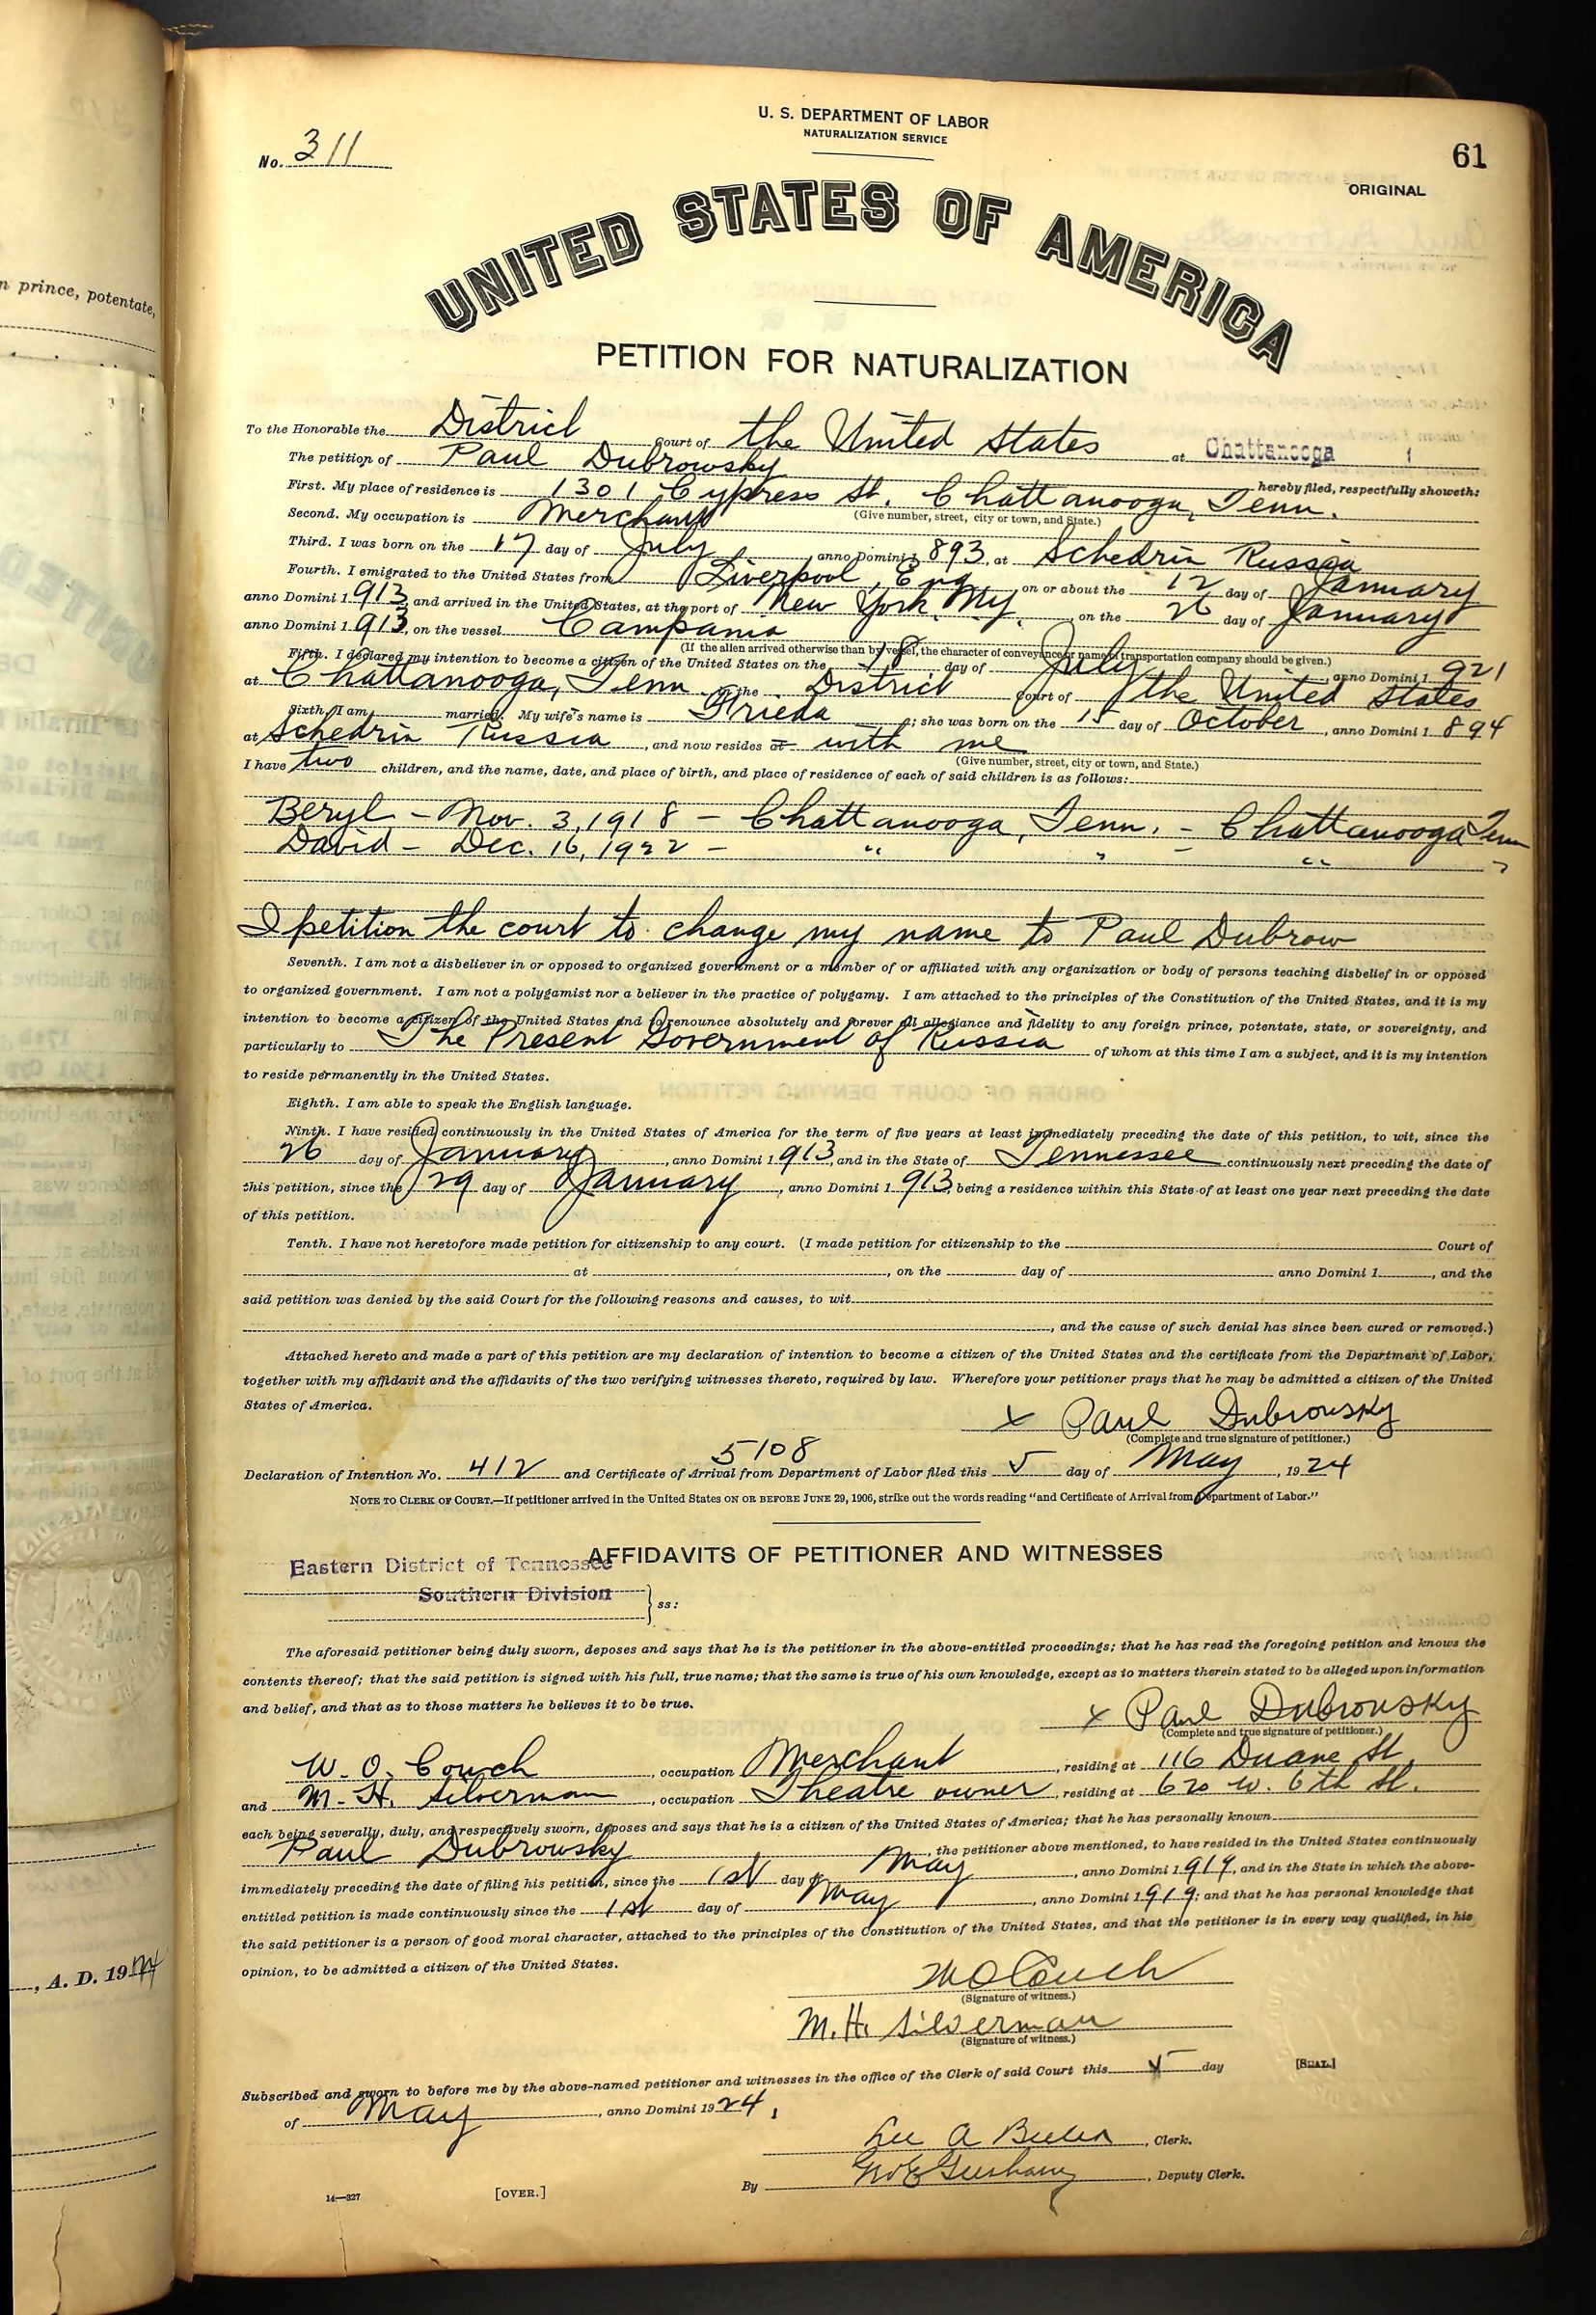 U. S. DEPARTMENT OF LABOR
NATURALIZATION SERVICE
No. 311
61
ORIGINAL
UNITED STATES OF AMERICA
PETITION FOR NATURALIZATION
To the Honorable the District Court of the United States at Chattanooga
The petition of Paul Dubrowsky hereby filed, respectfully showeth:
First. My place of residence is 1301 Cypress St. Chattanooga, Tenn.
(Give number, street, city or town, and State.)
Second. My occupation is Merchant
Third. I was born on the 17 day of July anno Domini 1 893, at Schedrin Russia
Fourth. I emigrated to the United States from Liverpool, Eng on or about the 12 day of January
anno Domini 1 913, and arrived in the United States, at the port of New York, Ny, on the 26 day of January
anno Domini 1 913, on the vessel Campania
(If the alien arrived otherwise than by vessel, the character of conveyance or name of transportation company should be given.)
Fifth. I declared my intention to become a citizen of the United States on the 18 day of July, anno Domini 1 921
at Chattanooga, Tenn in the District Court of the United States
Sixth. I am married. My wife's name is Frieda; she was born on the 15 day of October, anno Domini 1 894
at Schedrin Russia, and now resides at with me
(Give number, street, city or town, and State.)
I have two children, and the name, date, and place of birth, and place of residence of each of said children is as follows:
Beryl - Nov. 3, 1918 - Chattanooga, Tenn. - Chattanooga Tenn
David - Dec. 16, 1922 - " " - " "
I petition the court to change my name to Paul Dubrow
Seventh. I am not a disbeliever in or opposed to organized government or a member of or affiliated with any organization or body of persons teaching disbelief in or opposed
to organized government. I am not a polygamist nor a believer in the practice of polygamy. I am attached to the principles of the Constitution of the United States, and it is my
intention to become a citizen of the United States and to renounce absolutely and forever all allegiance and fidelity to any foreign prince, potentate, state, or sovereignty, and
particularly to The Present Government of Russia of whom at this time I am a subject, and it is my intention
to reside permanently in the United States.
Eighth. I am able to speak the English language.
Ninth. I have resided continuously in the United States of America for the term of five years at least immediately preceding the date of this petition, to wit, since the
26 day of January, anno Domini 1 913, and in the State of Tennessee continuously next preceding the date of
this petition, since the 29 day of January, anno Domini 1 913, being a residence within this State of at least one year next preceding the date
of this petition.
Tenth. I have not heretofore made petition for citizenship to any court. (I made petition for citizenship to the Court of
at , on the day of anno Domini 1 , and the
said petition was denied by the said Court for the following reasons and causes, to wit
, and the cause of such denial has since been cured or removed.)
Attached hereto and made a part of this petition are my declaration of intention to become a citizen of the United States and the certificate from the Department of Labor,
together with my affidavit and the affidavits of the two verifying witnesses thereto, required by law. Wherefore your petitioner prays that he may be admitted a citizen of the United
States of America.
x Paul Dubrowsky
(Complete and true signature of petitioner.)
Declaration of Intention No. 412 and Certificate of Arrival 5108 from Department of Labor filed this 5 day of May, 1924
NOTE TO CLERK OF COURT.—If petitioner arrived in the United States ON OR BEFORE JUNE 29, 1906, strike out the words reading "and Certificate of Arrival from Department of Labor."
AFFIDAVITS OF PETITIONER AND WITNESSES
Eastern District of Tennessee
Southern Division
ss:
The aforesaid petitioner being duly sworn, deposes and says that he is the petitioner in the above-entitled proceedings; that he has read the foregoing petition and knows the
contents thereof; that the said petition is signed with his full, true name; that the same is true of his own knowledge, except as to matters therein stated to be alleged upon information
and belief, and that as to those matters he believes it to be true.
x Paul Dubrowsky
(Complete and true signature of petitioner.)
W. O. Couch, occupation Merchant, residing at 116 Duane St.
and M. H. Silverman, occupation Theatre owner, residing at 620 W. 6th St.
each being severally, duly, and respectively sworn, deposes and says that he is a citizen of the United States of America; that he has personally known
Paul Dubrowsky, the petitioner above mentioned, to have resided in the United States continuously
immediately preceding the date of filing his petition, since the 1st day of May, anno Domini 1919, and in the State in which the above-
entitled petition is made continuously since the 1st day of May, anno Domini 1919; and that he has personal knowledge that
the said petitioner is a person of good moral character, attached to the principles of the Constitution of the United States, and that the petitioner is in every way qualified, in his
opinion, to be admitted a citizen of the United States.
W O Couch
(Signature of witness.)
M. H. Silverman
(Signature of witness.)
Subscribed and sworn to before me by the above-named petitioner and witnesses in the office of the Clerk of said Court this 5 day
[SEAL.]
of May, anno Domini 1924,
Lee A Beeler, Clerk.
By , Deputy Clerk.
14—327
[OVER.]
n prince, potentate,
, A. D. 19